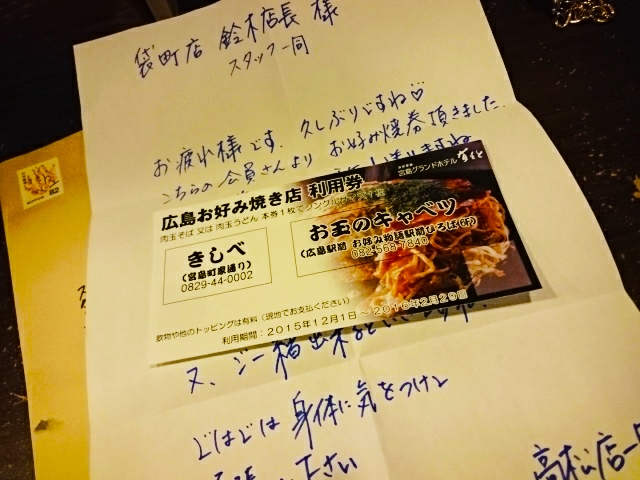 袋町店 鈴木店長 様
スタッフ一同
お疲れ様です。久しぶりですね♡
こちらの会員さんより お好み焼券頂きました。
宮島グランドホテル
広島お好み焼き店 利用券
肉玉そば 又は 肉玉うどん 本券1枚で
きしべ
(宮島町家通り)
0829-44-0002
お玉のキャベツ
(広島駅前 お好み物語駅前ひろば6F)
082-568-7840
飲物や他のトッピングは有料(現地でお支払ください)
利用期間:2015年12月1日~2016年2月29日
又、
ではでは 身体に気をつけて
下さい
高松店一同
82